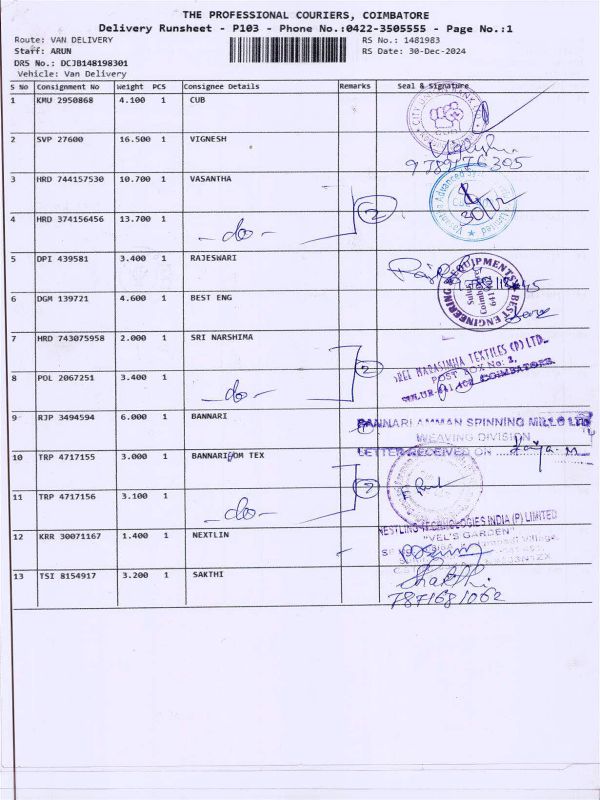 THE PROFESSIONAL COURIERS, COIMBATORE
Delivery Runsheet - P103 - Phone No.:0422-3505555 - Page No.:1
Route: VAN DELIVERY
RS No.: 1481983
Staff: ARUN
RS Date: 30-Dec-2024
DRS No.: DCJB148198301
Vehicle: Van Delivery
S No Consignment No Weight PCS Consignee Details Remarks Seal & Signature
1 KMU 2950868 4.100 1 CUB
CITY UNION BANK
2 SVP 27600 16.500 1 VIGNESH
9789176305
3 HRD 744157530 10.700 1 VASANTHA
2
30/12
4 HRD 374156456 13.700 1 -do-
5 DPI 439581 3.400 1 RAJESWARI
6 DGM 139721 4.600 1 BEST ENG
BEST ENGINEERING EQUIPMENTS
7 HRD 743075958 2.000 1 SRI NARSHIMA
SREE NARASIMHA TEXTILES (P) LTD.,
2
POST BOX No: 1,
8 POL 2067251 3.400 1 -do-
SULUR-641 402 COIMBATORE
9 RJP 3494594 6.000 1 BANNARI
BANNARI AMMAN SPINNING MILLS LTD
WEAVING DIVISION
LETTER RECEIVED ON
10 TRP 4717155 3.000 1 BANNARI OM TEX
2
11 TRP 4717156 3.100 1 -do-
NESTLING TECHNOLOGIES INDIA (P) LIMITED
12 KRR 30071167 1.400 1 NEXTLIN
"VEL'S GARDEN"
13 TSI 8154917 3.200 1 SAKTHI
Shakthi
7871681062